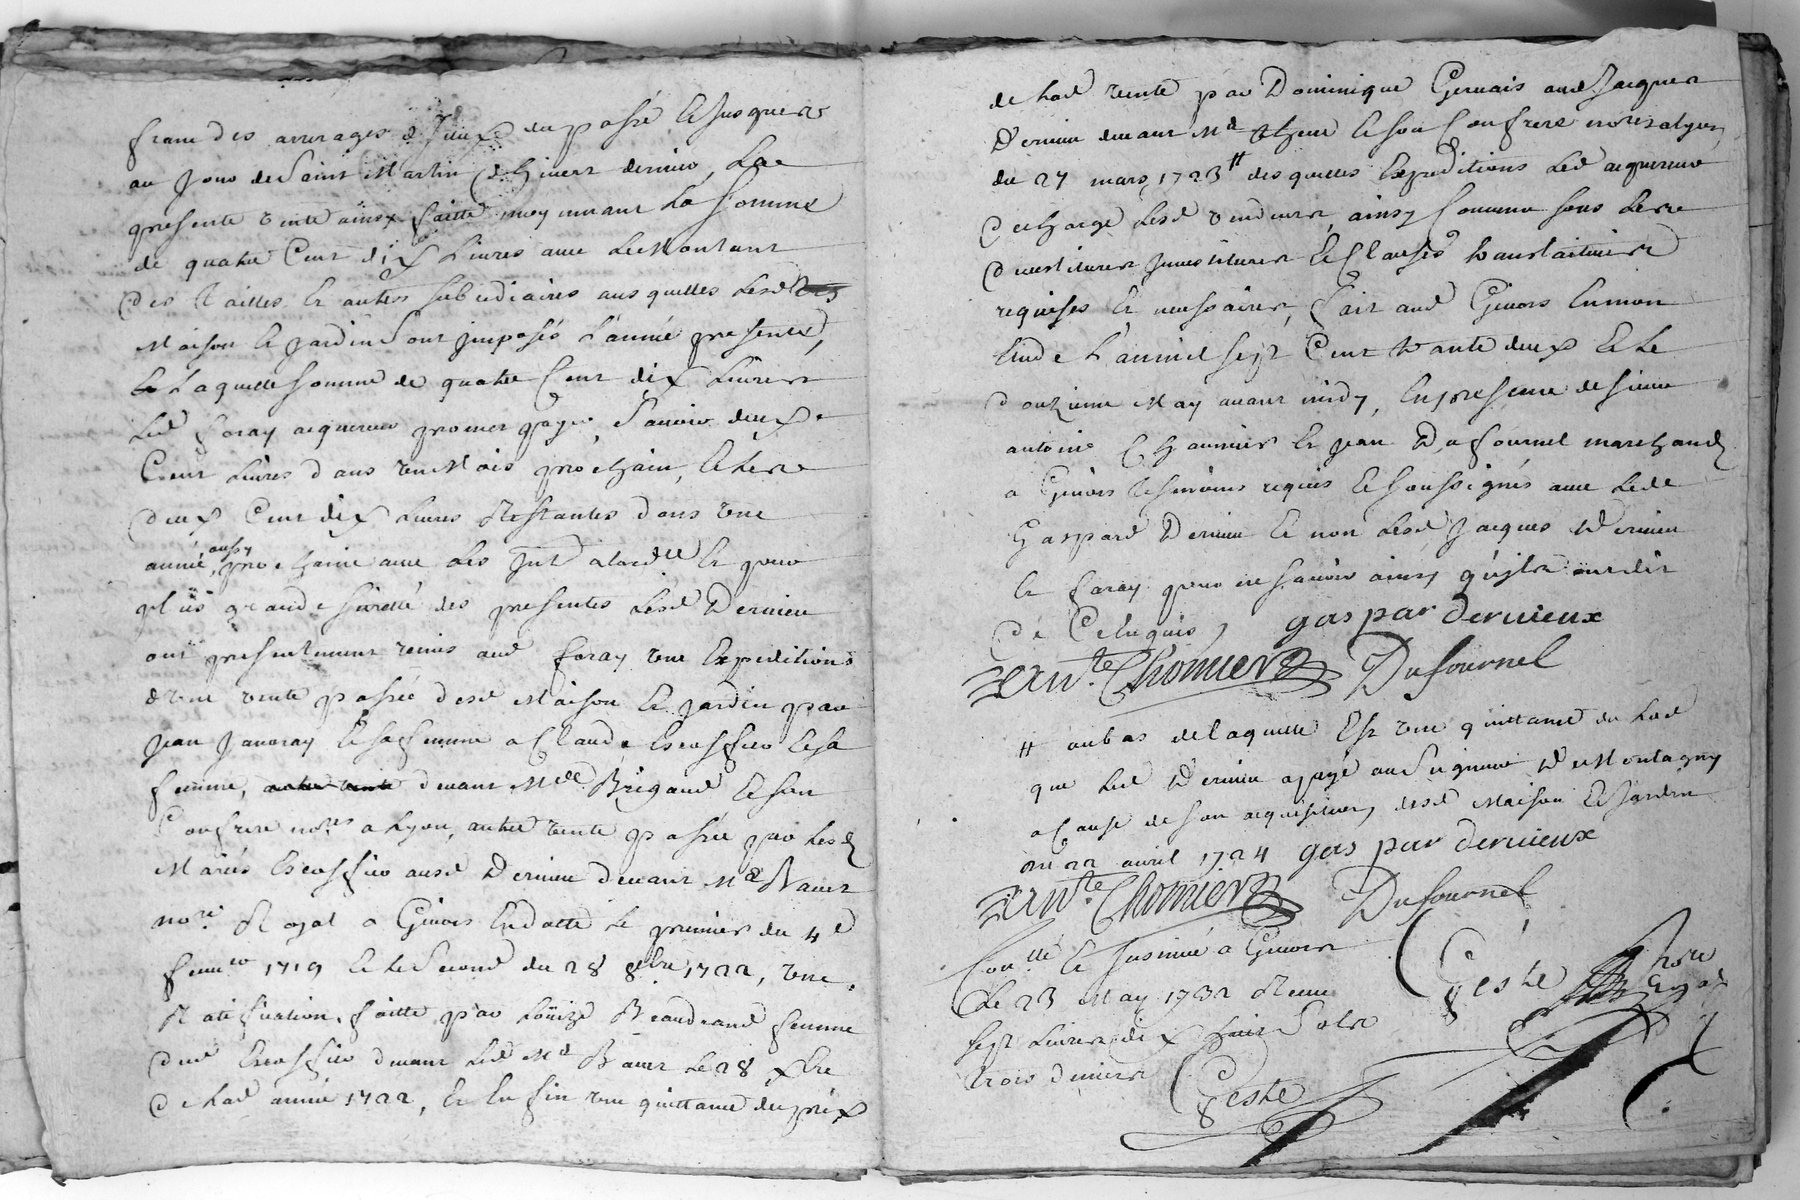 franc des arrerages d'iceux du passé et jusques
au jour de Saint Martin d'hivert dernier, La
presente vente ainsy faitte moyennant La somme
de quatre Cent dix Livres avec Le Montant
des Tailles et autres subcidiaires aus quelles Lesd
Maison et jardin sont imposés L'année presente,
Laquelle somme de quatre Cent dix Livres
Led foray aquereur promet payer, sçavoir deux
Cent Livres dans un Mois prochain, et Les
deux Cent dix Livres Restantes dans une
année, aussy prochaine avec Les Int a lad et pour
plus grande sureté des presentes Lesd Dervieu
ont presentement remis aud foray une Expeditions
d'une vente passée desd Maison et jardin par
Jean Janoray et sa femme a Claude Escoffier et sa
femme, devant Me Brigaud et son
Confrere nores a Lyon, autre vente passée par Lesd
Mariés Escoffier ausd Dervieu devant Me Baver
nore Royal a Givors En datte Le premier du 4e
fevrier 1719 et Le Second du 28 8bre 1722, une
Ratification faitte par Loüize Beaudrand femme
dud Escoffier devant Led Me Baver Le 28 xbre
de lad année 1722, et Enfin une quittance du prix
de lad vente par Dominique Gervais aud Jacques
Dervieu devant Me et son Confrere nores a Lyon
du 27 mars 1723 # des quelles Expeditions Led aquereur
decharge Lesd vendeurs, ainsy Convenu sous Les
devestitures investitures et Clauses translatives
requises et necessaires, fait aud Givors En mon
Etude L'an mil sept Cent trante deux et Le
douzieme May avant midy, En presence de sieur
antoine Chaumier et jean Dufournel marchand
a Givors tesmoins requis et soussignés avec Led
Gaspard Dervieu et non Lesd Jacques Dervieu
et foray pour ne sçavoir ainsy qu'ils ont dit
de Ce Enquis, gaspar dervieux
Ante Chomier Dufournel
# au bas de laquelle Est une quittance du Lod
que Led Dervieu a payé au Seigneur De Montagny
a Cause de son aquisition desd Maison et Jardin
du 22 avril 1724 gas par dervieux
Ante Chomier Dufournel
Conlle et Insinué a Givors
Le 23 May 1732 Receu Geste nore Royal
sept Livres dix huit Sols
trois deniers Geste